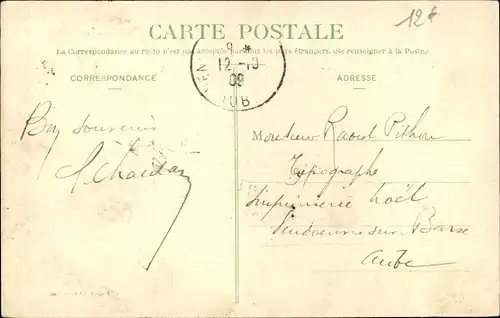 12 €
CARTE POSTALE
La Correspondance au recto n'est pas acceptée par tous les pays étrangers. (Se renseigner à la Poste.)
CORRESPONDANCE
ADRESSE
9 *
12 - 10
09
AUB
Bon souvenir
Monsieur Raoul Pithou
Typographe
Imprimerie Noël
Vendeuvre sur Barse
Aube